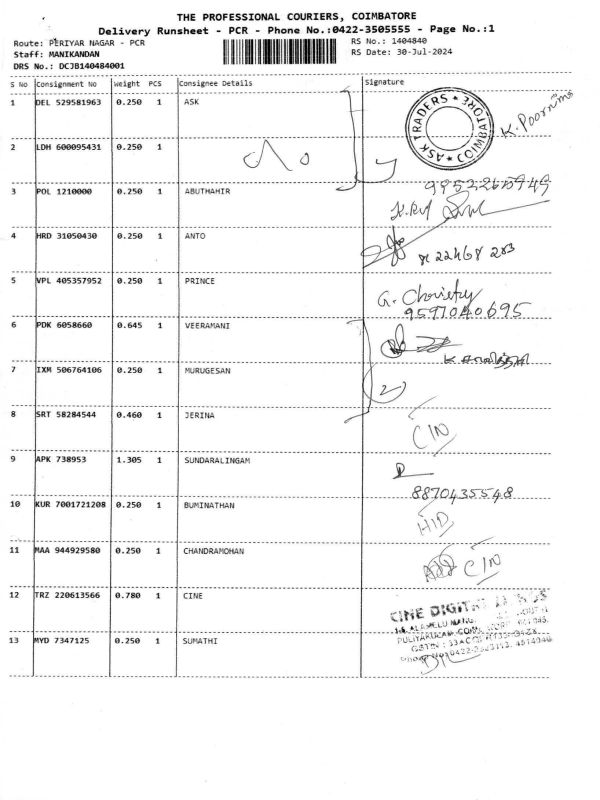 THE PROFESSIONAL COURIERS, COIMBATORE
Delivery Runsheet - PCR - Phone No.:0422-3505555 - Page No.:1
Route: PERIYAR NAGAR - PCR RS No.: 1404840
Staff: MANIKANDAN RS Date: 30-Jul-2024
DRS No.: DCJB140484001
S No Consignment No Weight PCS Consignee Details Signature
1 DEL 529581963 0.250 1 ASK
ASK TRADERS * COIMBATORE *
K. Poornima
2 LDH 600095431 0.250 1
3 POL 1210000 0.250 1 ABUTHAHIR
4 HRD 31050430 0.250 1 ANTO
5 VPL 405357952 0.250 1 PRINCE
9597040695
6 PDK 6058660 0.645 1 VEERAMANI
7 IXM 506764106 0.250 1 MURUGESAN
2
8 SRT 58284544 0.460 1 JERINA
C/N
9 APK 738953 1.305 1 SUNDARALINGAM
8870435548
10 KUR 7001721208 0.250 1 BUMINATHAN
H/D
11 MAA 944929580 0.250 1 CHANDRAMOHAN
C/N
12 TRZ 220613566 0.780 1 CINE
CINE DIGIT
13 MYD 7347125 0.250 1 SUMATHI